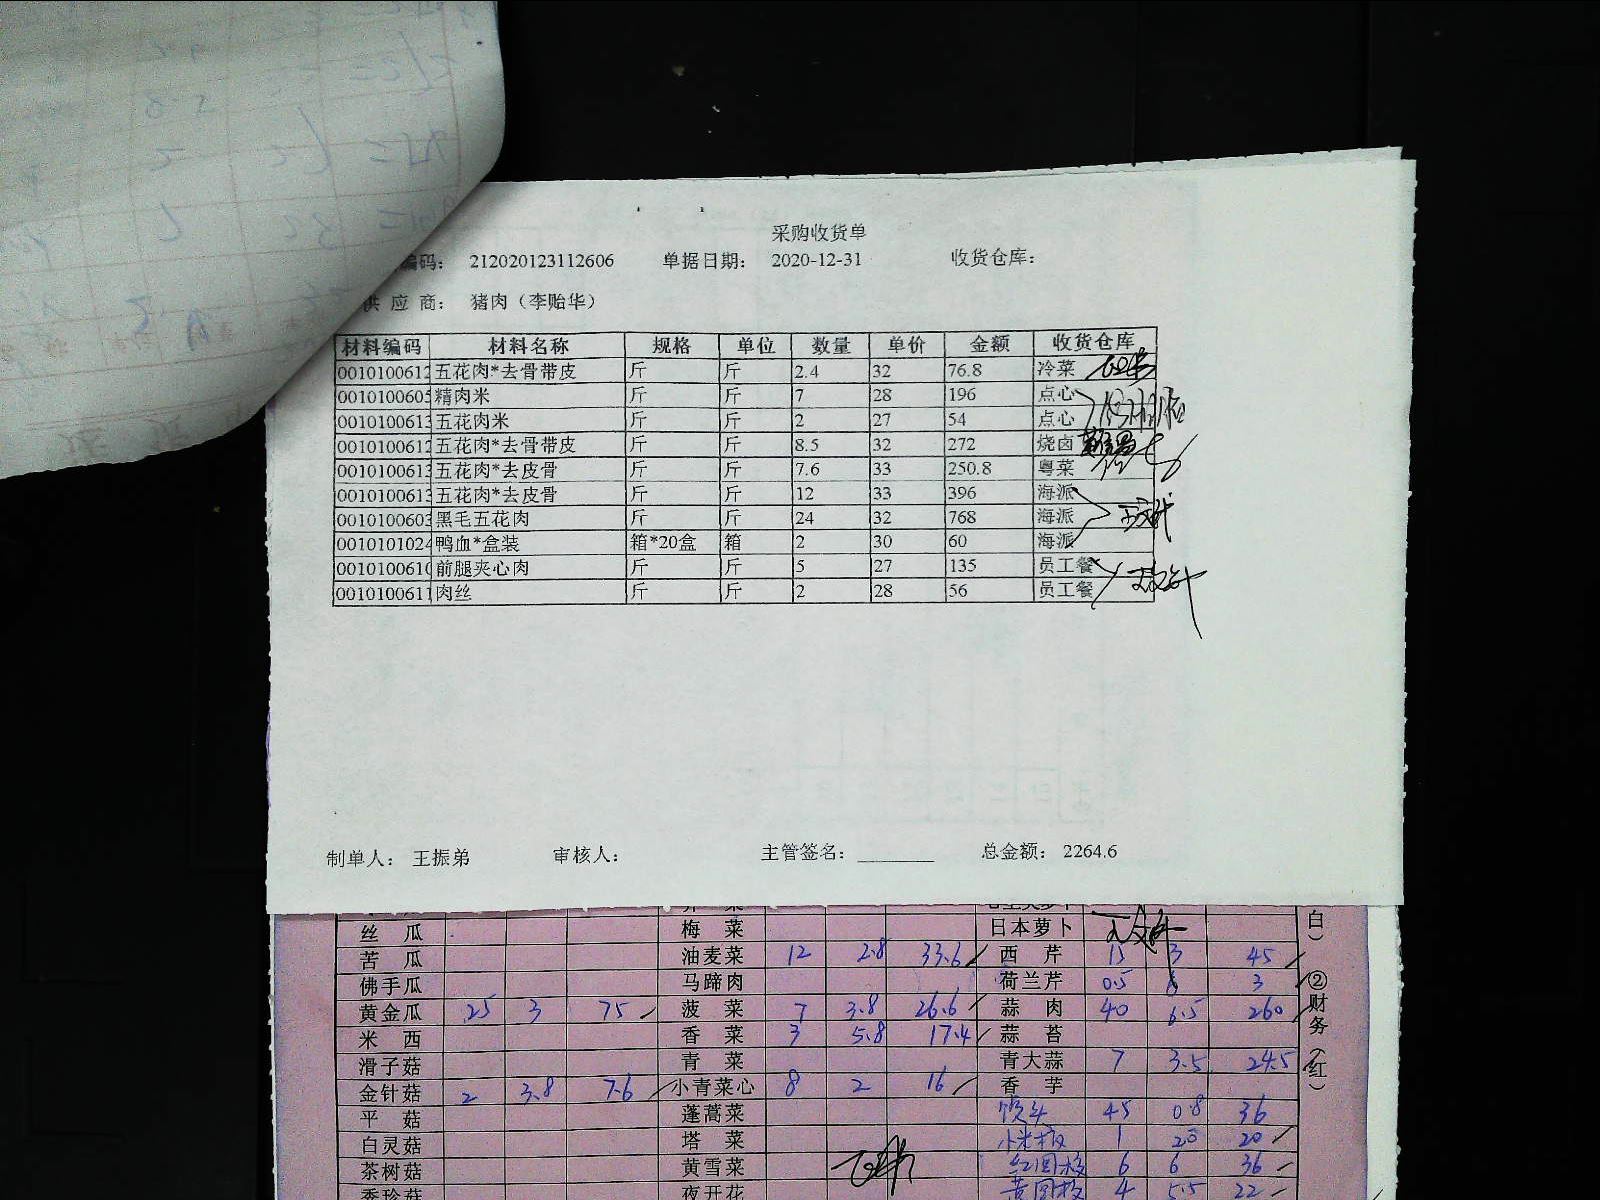 采购收货单
编码： 212020123112606 单据日期： 2020-12-31 收货仓库：
供 应 商： 猪肉（李贻华）
材料编码 材料名称 规格 单位 数量 单价 金额 收货仓库
0010100612 五花肉*去骨带皮 斤 斤 2.4 32 76.8 冷菜
0010100605 精肉米 斤 斤 7 28 196 点心
0010100613 五花肉米 斤 斤 2 27 54 点心
0010100612 五花肉*去骨带皮 斤 斤 8.5 32 272 烧卤
0010100613 五花肉*去皮骨 斤 斤 7.6 33 250.8 粤菜
0010100613 五花肉*去皮骨 斤 斤 12 33 396 海派
0010100603 黑毛五花肉 斤 斤 24 32 768 海派
0010101024 鸭血*盒装 箱*20盒 箱 2 30 60 海派
0010100610 前腿夹心肉 斤 斤 5 27 135 员工餐
0010100611 肉丝 斤 斤 2 28 56 员工餐
制单人： 王振弟 审核人： 主管签名： 总金额： 2264.6
丝 瓜 梅 菜 日本萝卜
苦 瓜 油麦菜 12 2.8 33.6 西 芹 15 3 45
佛手瓜 马蹄肉 荷兰芹 0.5 6 3
黄金瓜 25 3 75 菠 菜 7 3.8 26.6 蒜 肉 40 6.5 260
米 西 香 菜 3 5.8 17.4 蒜 苔
滑子菇 青 菜 青大蒜 7 3.5 24.5
金针菇 2 3.8 7.6 小青菜心 8 2 16 香 芋
平 菇 蓬蒿菜 馒头 45 0.8 36
白灵菇 塔 菜 小米椒 1 20 20
茶树菇 黄雪菜 红圆椒 6 6 36
秀珍菇 夜开花 黄圆椒 4 5.5 22
白）
②财务（红）